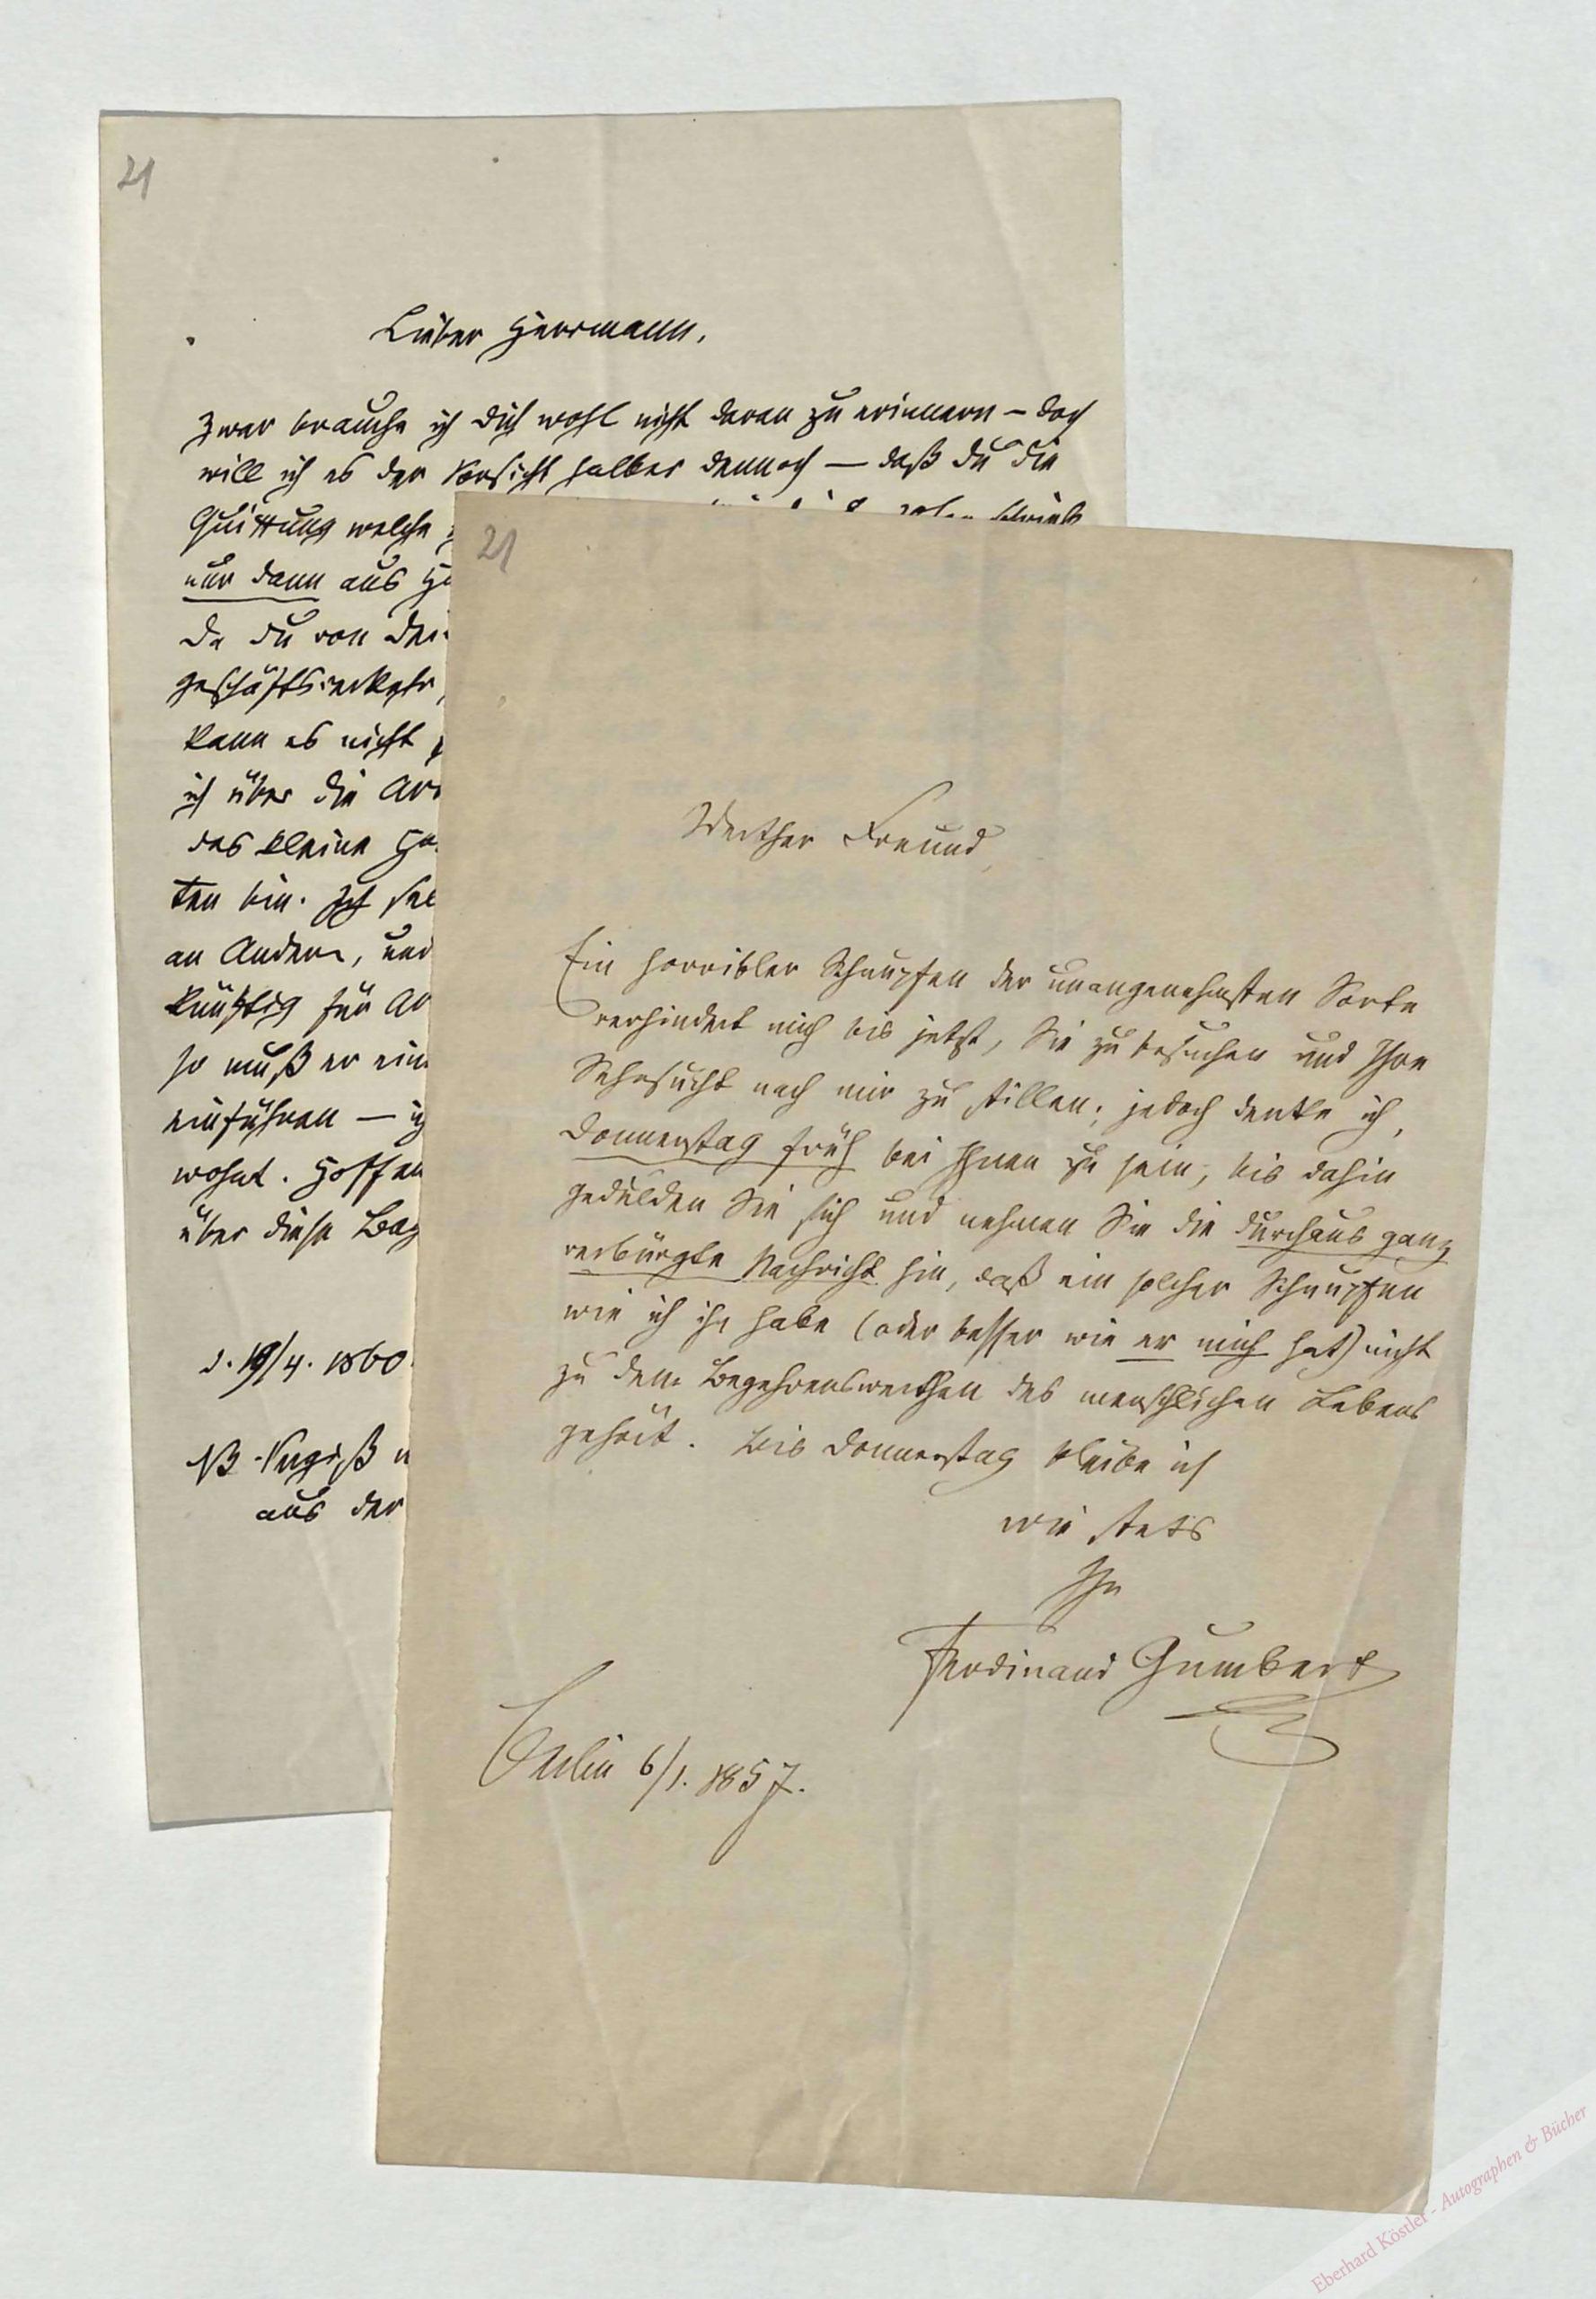 21
Lieber Herrmann,
Zwar brauche ich Dich wohl nicht daran zu erinnern – doch
will ich es der Vorsicht halber dennoch — daß Du die
Quittung welche
nur dann aus
Da Du von
Geschäftsverkehr,
kann es nicht
ich über die
das kleine
ten bin. Ich
an Andere, und
künftig für
so muß er
einführen —
wohnt. Hoffen
über diese
d. 19/4. 1860.
NB. Vergiß
aus der
21
Werther Freund,
Ein horribler Schnupfen der unangenehmsten Sorte
verhindert mich bis jetzt, Sie zu besuchen und Ihre
Sehnsucht nach mir zu stillen; jedoch denke ich,
Donnerstag früh bei Ihnen zu sein; bis dahin
gedulden Sie sich und nehmen Sie die durchaus ganz
verbürgte Nachricht hin, daß ein solcher Schnupfen
wie ich ihn habe (oder besser wie er mich hat) nicht
zu den Begehrenswerthen des menschlichen Lebens
gehört. Bis Donnerstag bleibe ich
wie stets
Ihr
Ferdinand Gumbert
Berlin 6/1. 1857.
Eberhard Köstler - Autographen & Bücher